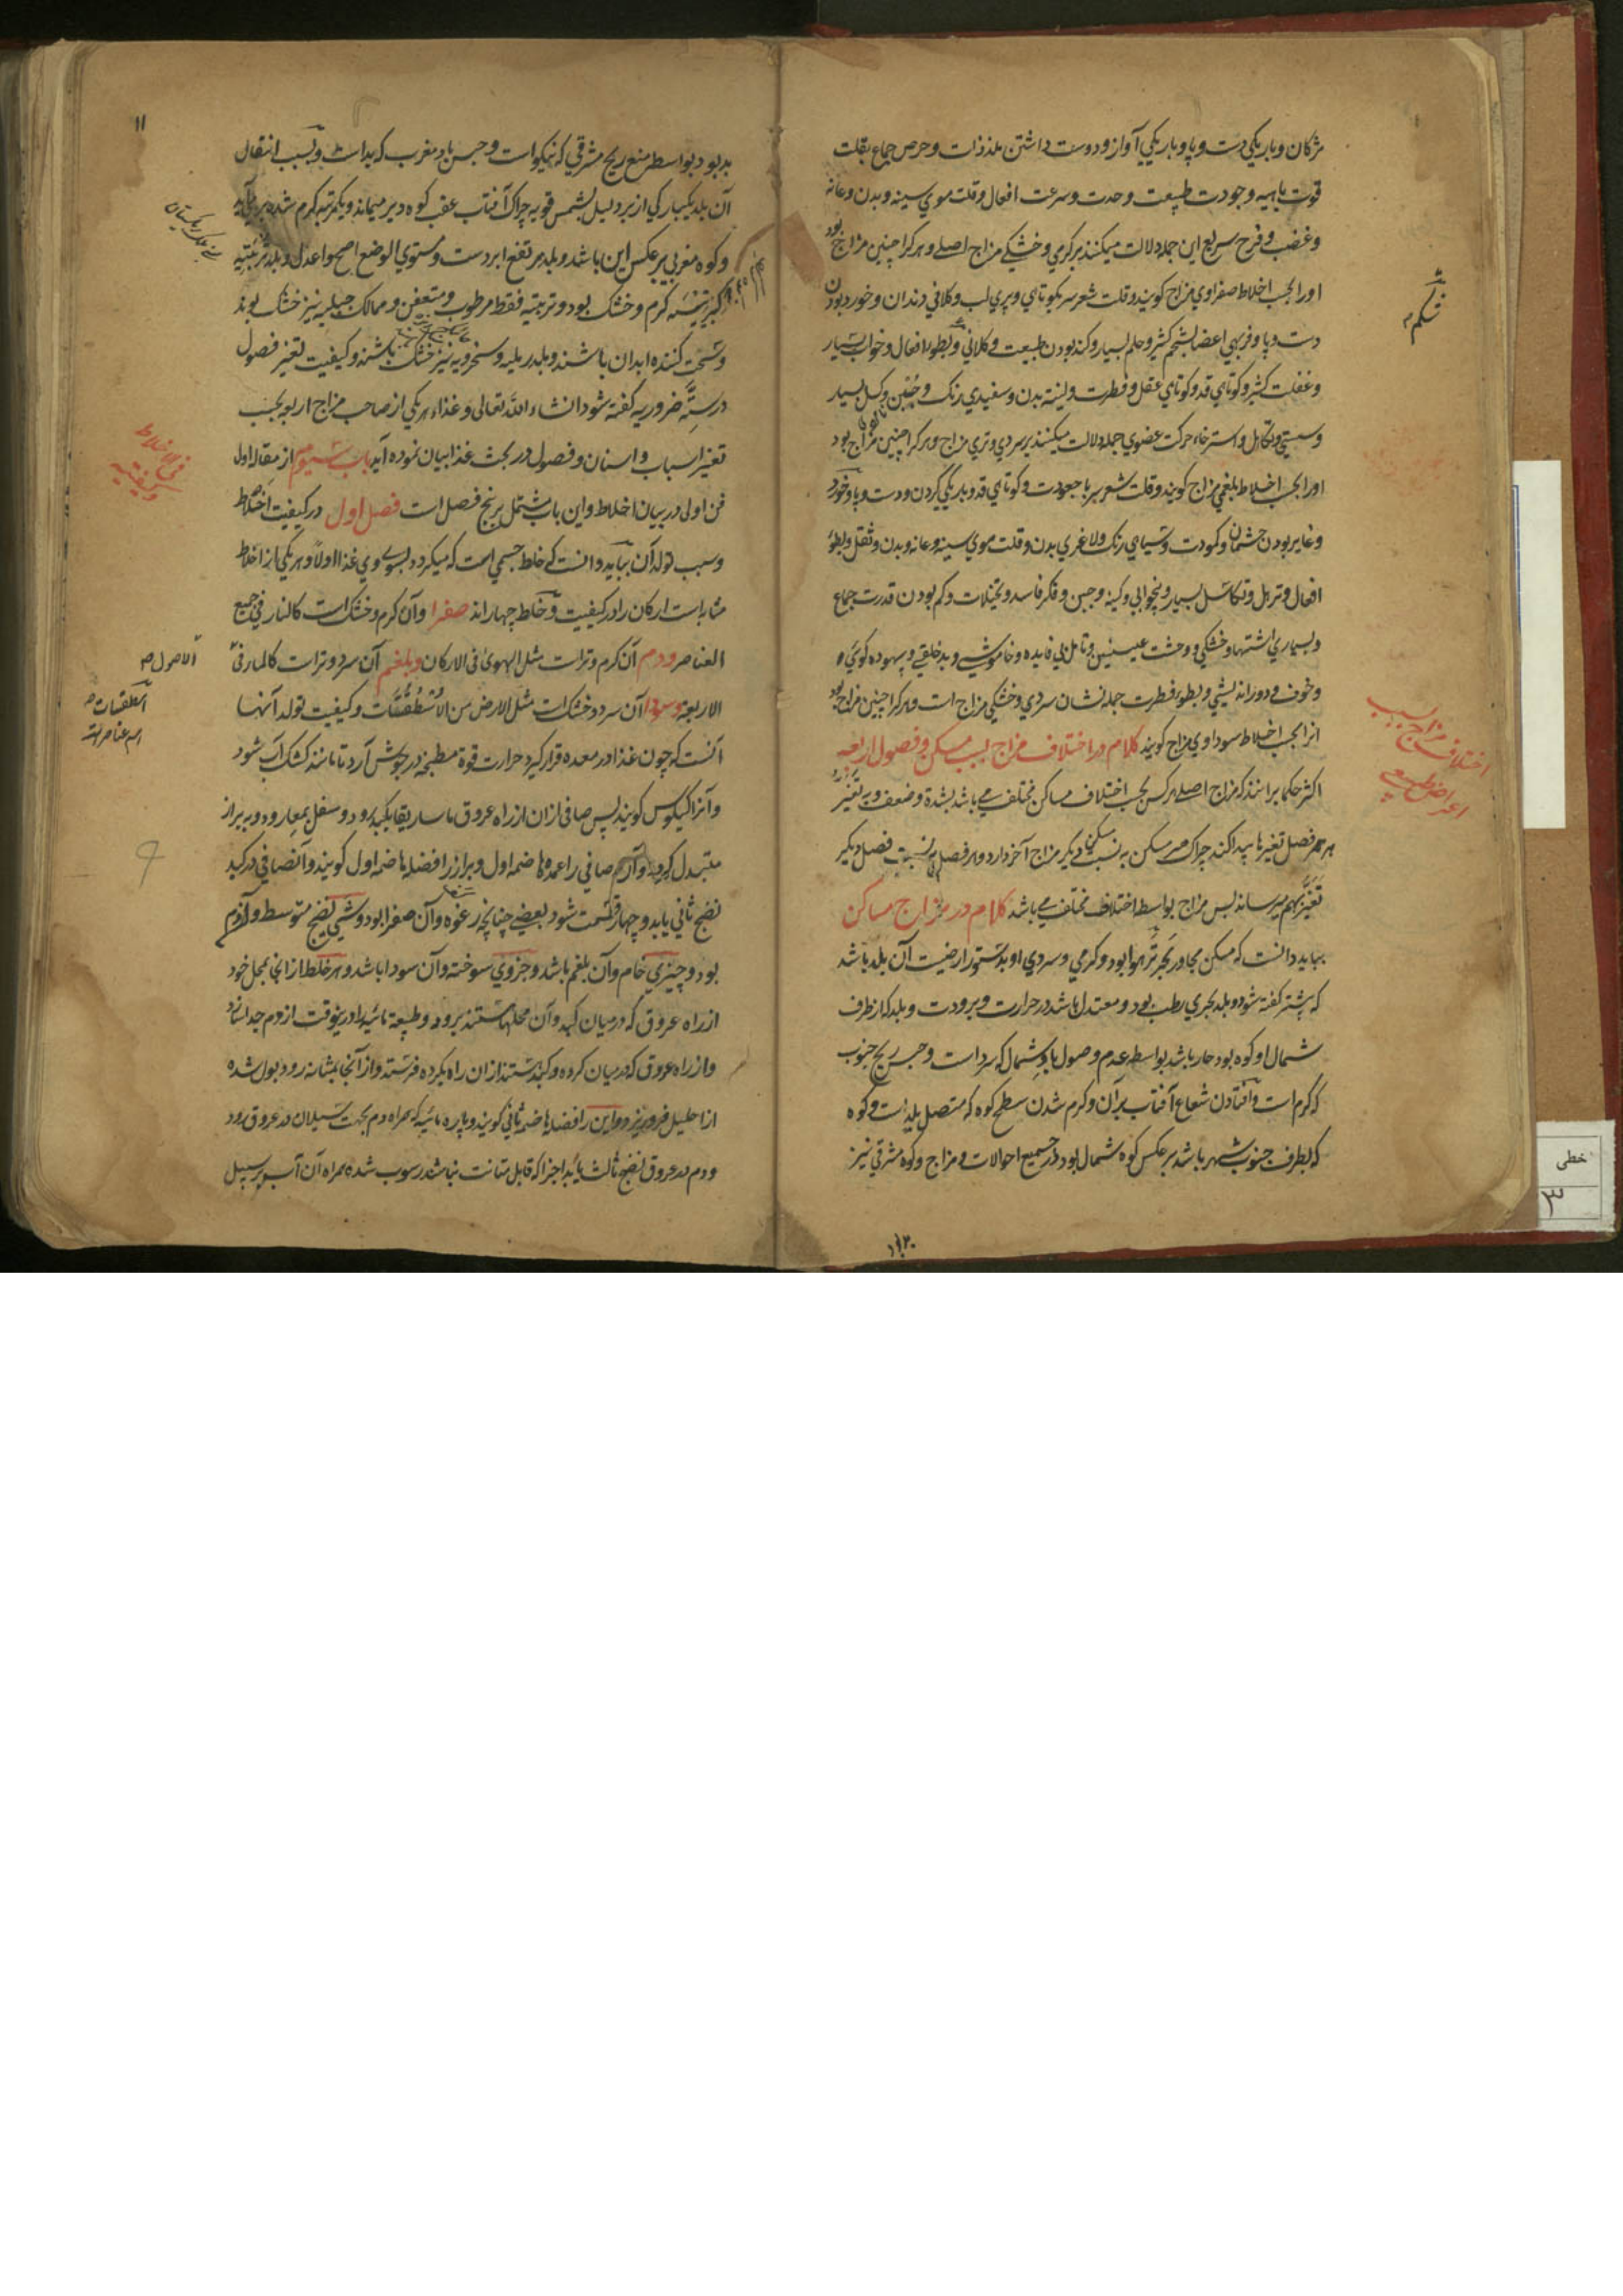 مژکان و باریکی دست و پا و باریکی آواز و دوست داشتن ملذذات و حرص جماع بقلت
قوت باهیه و جودت طبیعت و حدت و سرعت افعال و قلت موی سینه و بدن و عانه
و غضب و فرح سریع این جمله دلالت میکنند بر کرمی و خشکی مزاج اصلی و هر کرا چنین مزاج بود
او را بحسب اخلاط صفراوی مزاج کویند و قلت شعر سر بکوتاهی و پری لب و کلانی دندان و خورد بودن
دست و پا و فربهی اعضا بشحم کثیر و حلم بسیار و کند بودن طبیعت و کلانی و بطوء افعال و خواب بسیار
و غفلت کثیر و کوتاهی قد و کوتاهی عقل و فطرت و لینة بدن و سفیدی رنک و جُبن و کسل بسیار
و سستی و تکاهل و استرخاء حرکت عضوی جمله دلالت میکنند بر سردی و تری مزاج و هر کرا چنین مزاج بود
او را بحسب اخلاط بلغمی مزاج کویند و قلت شعر سر با جعودت و کوتاهی قد و باریکی کردن و دست و پا و خورد
و غایر بودن چشمان و کمودت و سیاهی رنک و لاغری بدن و قلت موی سینه و عانه و بدن و ثقل و بطوء
افعال و تربل و تکاسل بسیار و بیخوابی و کینه و جبن و فکر فاسد و تخیلات و کم بودن قدرت جماع
و بسیاری اشتها و خشکی و وحشت عینین و تامل بی فایده و خاموشی و بد خلقی و بیهوده کوئی و
و خوف و دور اندیشی و بطوء فطرت جمله نشان سردی و خشکی مزاج است و هر کرا چنین مزاج بود
انرا بحسب اخلاط سوداوی مزاج کویند کلام در اختلاف مزاج بسبب مسکن و فصول اربعه
اکثر حکما برانند که مزاج اصلی هر کس بحسب اختلاف مساکن مختلف می باشد بشدة و ضعف و به تغیّر
هر فصل تغیرها پیدا کند چراکه هر مسکن به نسبت مسکن دیکر مزاج آخر دارد و هر فصل به نسبت فصل دیکر
تغیّر بهم میرساند پس مزاج بواسطه اختلاف مختلف می باشد کلام در مزاج مساکن
بباید دانست که مسکن مجاور بحر تر هوا بود و کرمی و سردی او بدستور ارضیت آن بلد باشد
که پیشتر کفته شود و بلد بحری رطب بود و معتدل باشد در حرارت و برودت و بلد که از طرف
شمال او کوه بود حار باشد بواسطه عدم وصول باد شمال که سرد است و حبس ریح جنوب
که کرم است و افتادن شعاع آفتاب بر آن و کرم شدن سطح کوه که متصل بلد است و کوه
که بطرف جنوب شهر باشد بر عکس کوه شمال بود در جمیع احوالات و مزاج و کوه مشرقی نیز
شکم
اختلاف مزاج بسبب
۱۱
بد بود بواسطه منع ریح مشرقی که نیکو است و حبس باد مغرب که بد است و بسبب انتقال
آن بلد یکبارکی از برد لیل بشمس قویه چراکه آفتاب عقب کوه دیر میماند و یکمرتبه کرم شده بر می آید
و کوه مغربی بر عکس این باشد و بلد مرتفع ابرد است و مستوی الوضع اصح هوا و اعدل و بلد تربتیه
کبریتیه کرم و خشک بود و تربتیه فقط مرطوب و متعفن و ممالک جبلیه نیز خشک بوند
و سخت کننده ابدان باشند و بلد رملیه و سخرویه نیز خشک باشند و کیفیت تغیر فصول
در ستّه ضروریه کفته شود انشاء الله تعالی و غذاء هر یکی از صاحب مزاج اربعه بحسب
تغیر اسباب و اسنان و فصول در بحث غذا بیان نموده آید باب سیوم از مقاله اول
فن اولی در بیان اخلاط و این باب مشتمل بر پنج فصل است فصل اول در کیفیت اخلاط
و سبب تولد آن بباید دانست که خلط جسمی است که میکردد بسوی وی غذا اولاً و هر یکی از اخلاط
مشابه است ارکان را در کیفیت و خلط چهار اند صفرا و آن کرم و خشک است کالنار فی جمیع
العناصر و دم آن کرم و تر است مثل الهوی فی الارکان و بلغم آن سرد و تر است کالماء فی
الاربعه و سودا آن سرد و خشک است مثل الارض من الاُسْطُقُسّات و کیفیت تولد آنها
آنست که چون غذا در معده قرار کیرد حرارت قوة مطبخه در جوش آرد تا مانند کشک آب شود
و آنرا کیلوس کویند پس صافی ازان از راه عروق ماساریقا بکبد رود و سفل بمعا رود و به براز
متبدل کردد و آن صافی را عمده هاضمه اول و براز را فضله هاضمه اول کویند و آن صافی در کبد
نضج ثانی یابد و چهار قسمت شود بعضی چنانچه رغوه و آن صفرا بود و شی نضیج متوسط و آن دم
بود و چیزی خام و آن بلغم باشد و جزوی سوخته و آن سودا باشد و هر خلط از انجا بمحل خود
از راه عروق که درمیان کبد و آن محلها هستند برود و طبیعة مائیة را درینوقت از دم جدا سازد
و از راه عروق که درمیان کرده و کبد هستند ازان راه بکرده فرستد و از آنجا بمثانه رود و بول شده
از احلیل فرو ریزد و این را فضله هاضمه ثانی کویند و پاره مائیه که همراه دم بجهت سیلان در عروق رود
و دم در عروق نضج ثالث یابد اجزا که قابل متانت نباشد رسوب شده همراه آن آب بر سبیل
الاصول
اسطقسات
اسم عناصر است
خطی
۳